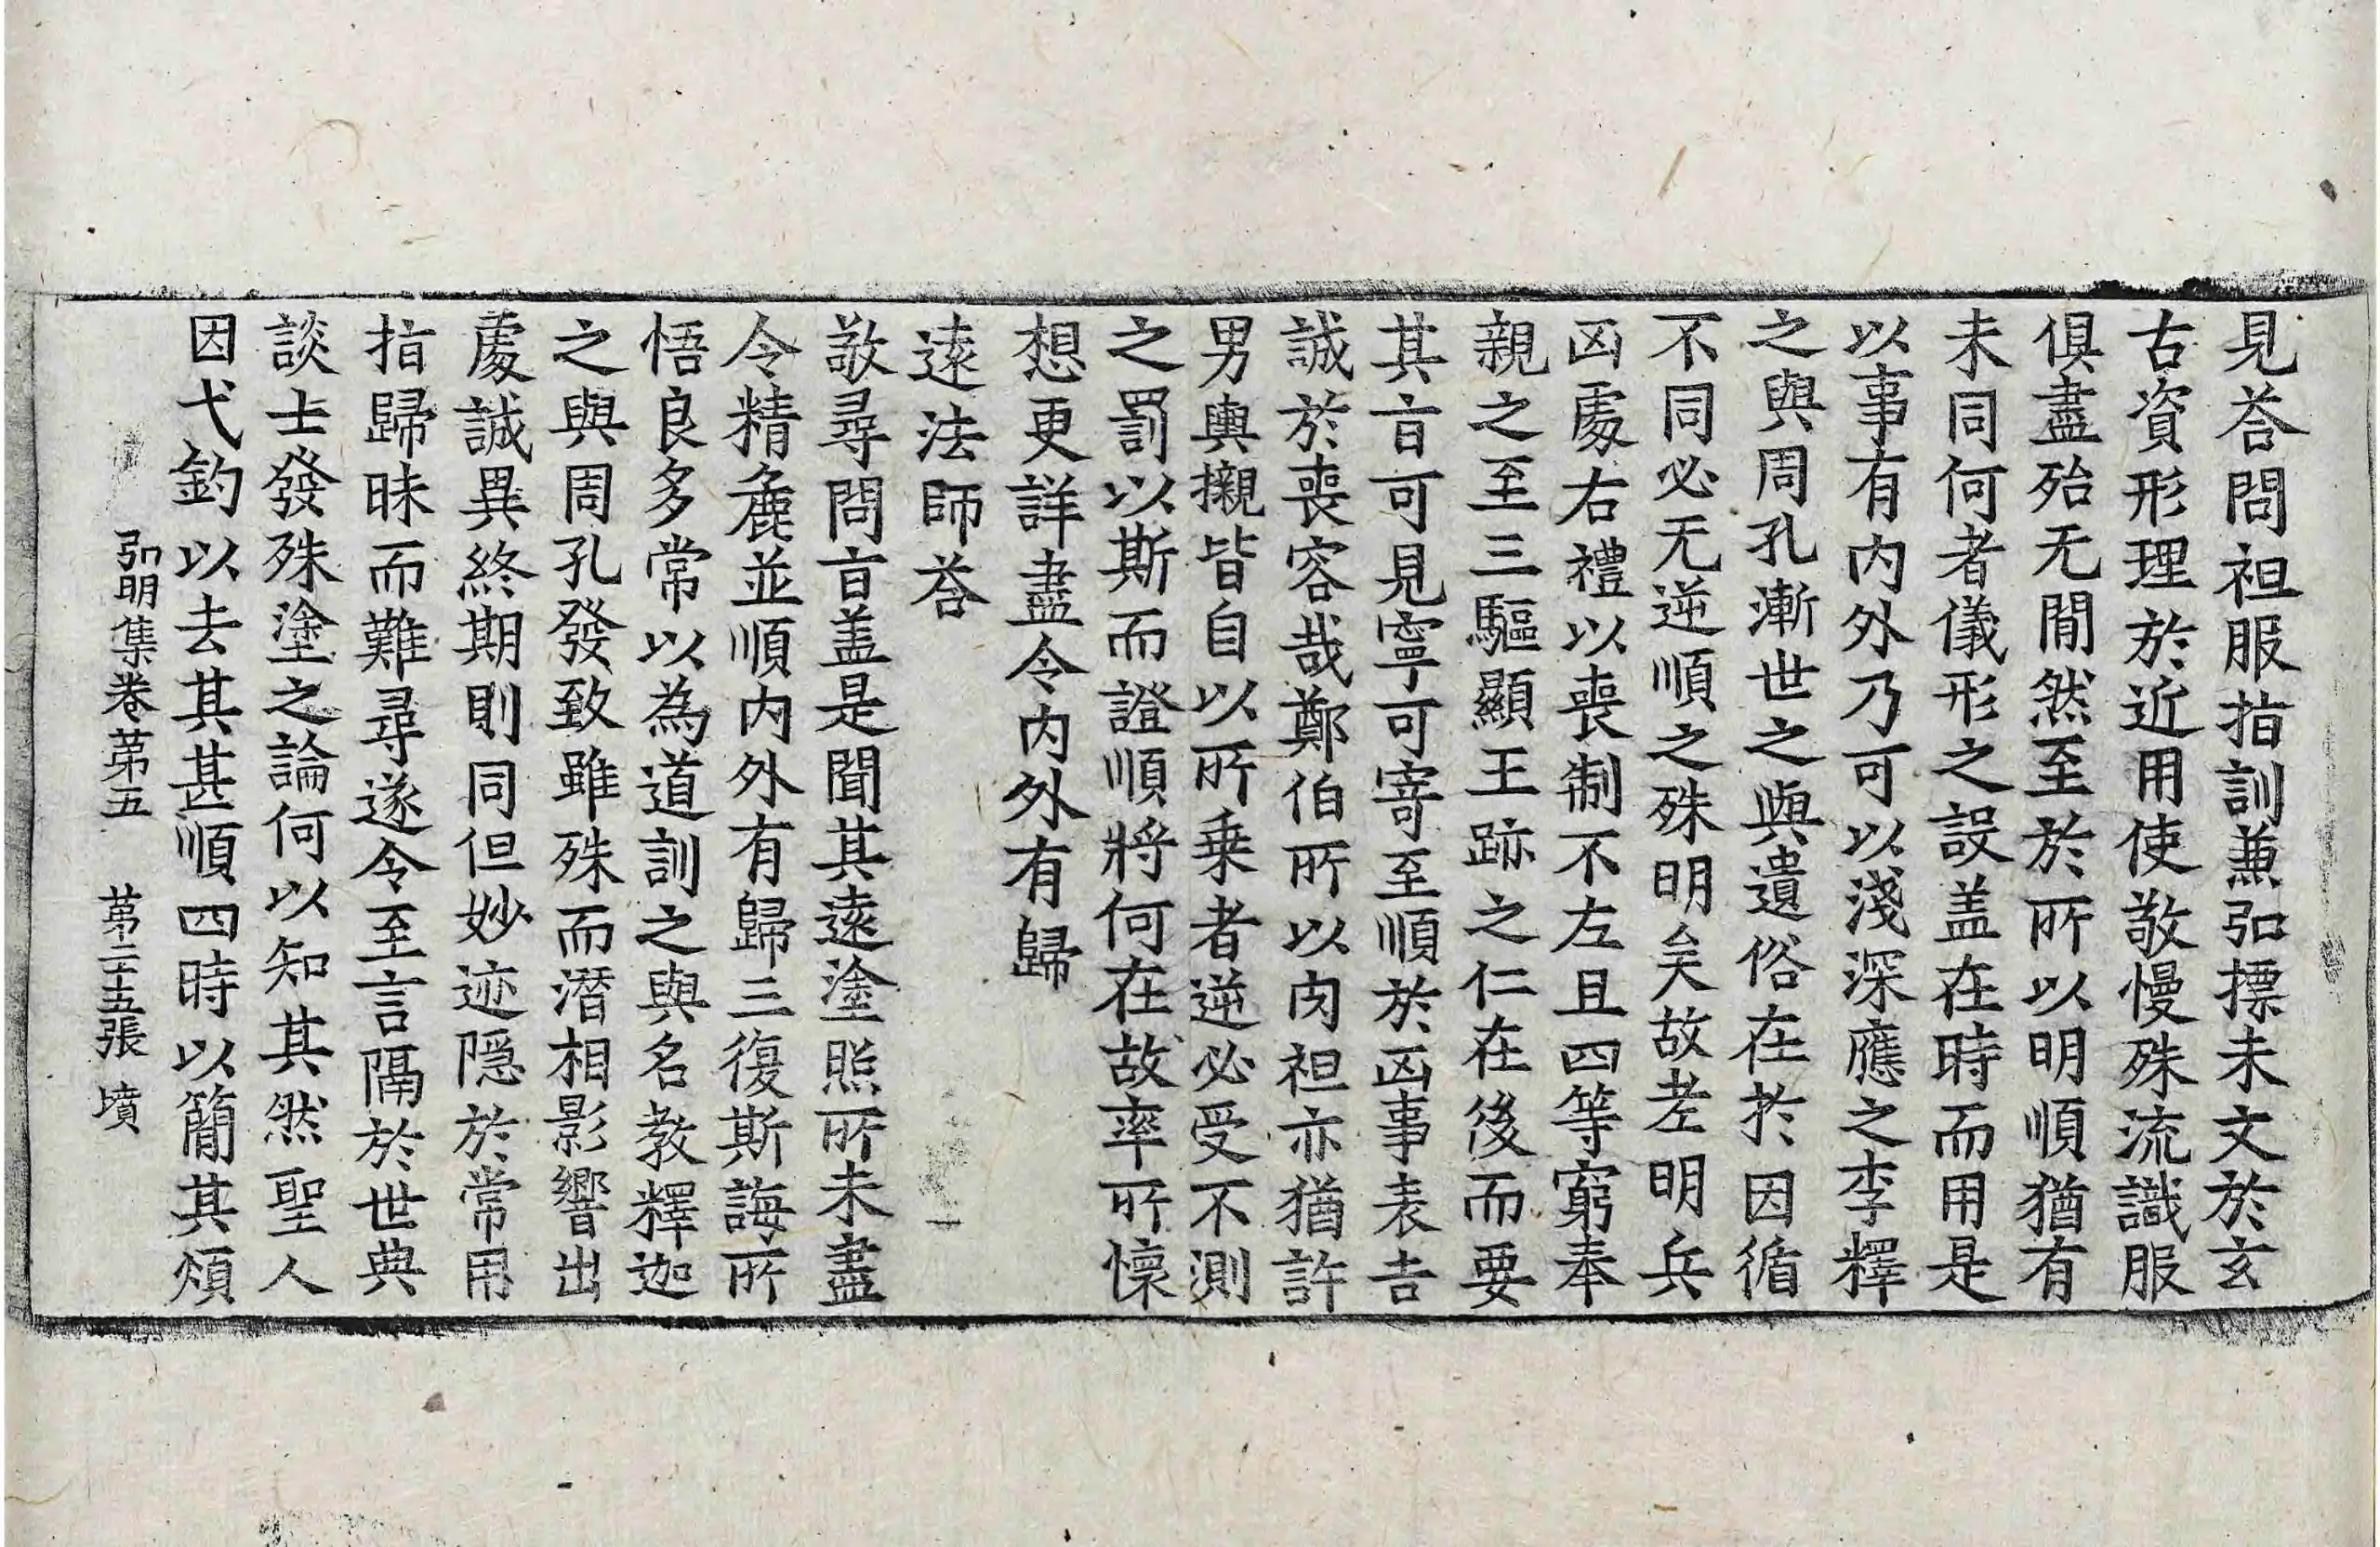 見荅問袒服指訓兼弘摽未文於玄
古資形理於近用使敬慢殊流識服
俱盡殆无間然至於所以明順猶有
未同何者儀形之設盖在時而用是
以事有内外乃可以淺深應之李釋
之與周孔漸世之與遺俗在扵因循
不同必无逆順之殊明矣故老明兵
凶處右禮以喪制不左且四等窮奉
親之至三驅顯王跡之仁在後而要
其㫖可見寧可寄至順於凶事表吉
誠於喪容哉鄭伯所以肉袒亦猶許
男輿櫬皆自以所乗者逆必受不測
之罰以斯而證順將何在故率所懷
想更詳盡令内外有歸
遠法師荅
敬尋問㫖盖是聞其遠塗照所未盡
令精麁並順内外有歸三復斯誨所
悟良多常以為道訓之與名教釋迦
之與周孔發致雖殊而潛相影響出
處誠異終期則同但妙迹隱於常用
指歸昧而難尋遂令至言隔於世典
談士發殊塗之論何以知其然聖人
因弋釣以去其甚順四時以簡其煩
弘明集卷第五 第二十五張 墳